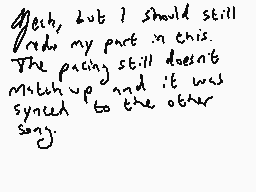 Yeah, but I should still
redo my part in this.
The pacing still doesn't
match up and it was
synced to the other
song.